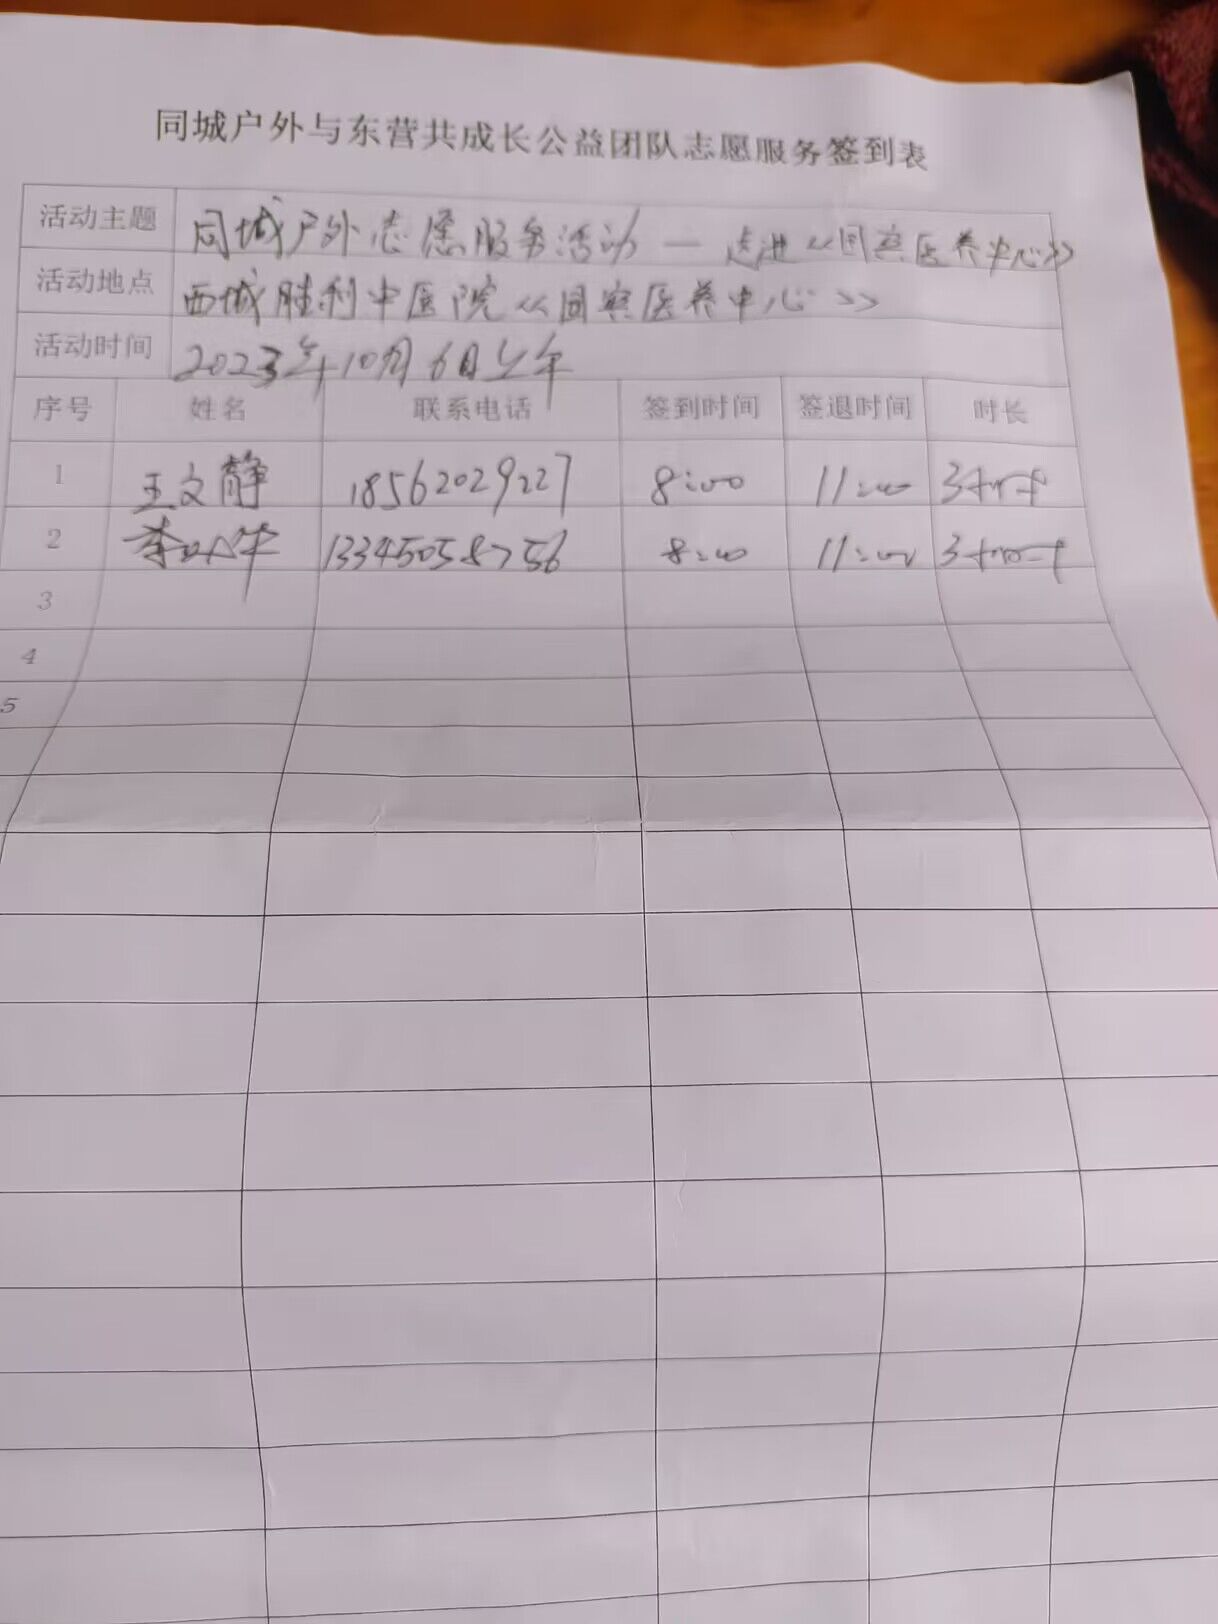 同城户外与东营共成长公益团队志愿服务签到表
活动主题 同城户外志愿服务活动 — 走进《国宾医养中心》
活动地点 西城胜利中医院《国宾医养中心》
活动时间 2023年10月6日上午
序号 姓名 联系电话 签到时间 签退时间 时长
1 王文静 18562029227 8:00 11:00 3小时
2 李 13345058756 8:00 11:00 3小时
3
4
5